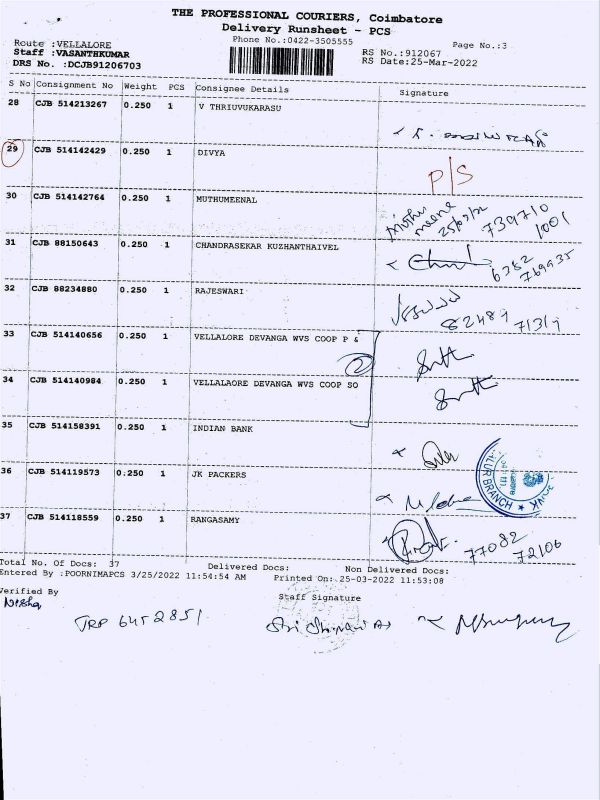 THE PROFESSIONAL COURIERS, Coimbatore
Delivery Runsheet - PCS
Phone No.:0422-3505555
Page No.:3
Route :VELLALORE
Staff :VASANTHKUMAR
DRS No. :DCJB91206703
RS No.:912067
RS Date:25-Mar-2022
S No Consignment No Weight PCS Consignee Details Signature
28 CJB 514213267 0.250 1 V THRIUVUKARASU
29 CJB 514142429 0.250 1 DIVYA
P/S
30 CJB 514142764 0.250 1 MUTHUMEENAL
Muthu
meena
25/03/22
739710
1001
31 CJB 88150643 0.250 1 CHANDRASEKAR KUZHANTHAIVEL
6382
769935
32 CJB 88234880 0.250 1 RAJESWARI
82489 71319
33 CJB 514140656 0.250 1 VELLALORE DEVANGA WVS COOP P &
2
34 CJB 514140984 0.250 1 VELLALAORE DEVANGA WVS COOP SO
35 CJB 514158391 0.250 1 INDIAN BANK
36 CJB 514119573 0.250 1 JK PACKERS
BRANCH
37 CJB 514118559 0.250 1 RANGASAMY
77082
72106
Total No. Of Docs: 37 Delivered Docs: Non Delivered Docs:
Entered By :POORNIMAPCS 3/25/2022 11:54:54 AM Printed On: 25-03-2022 11:53:08
Verified By
Staff Signature
Nisha
TRP 6452851